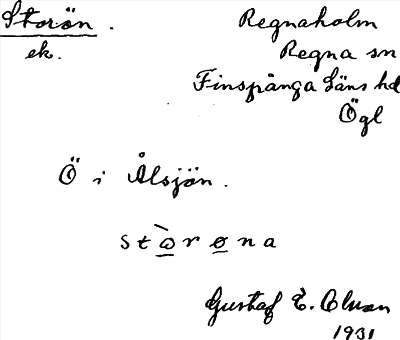 Storön.
ek.
Regnaholm
Regna sn
Finspånga läns hd
Ögl
Ö i Ålsjön.
stɷ̀rɵna
Gustaf E.
1931